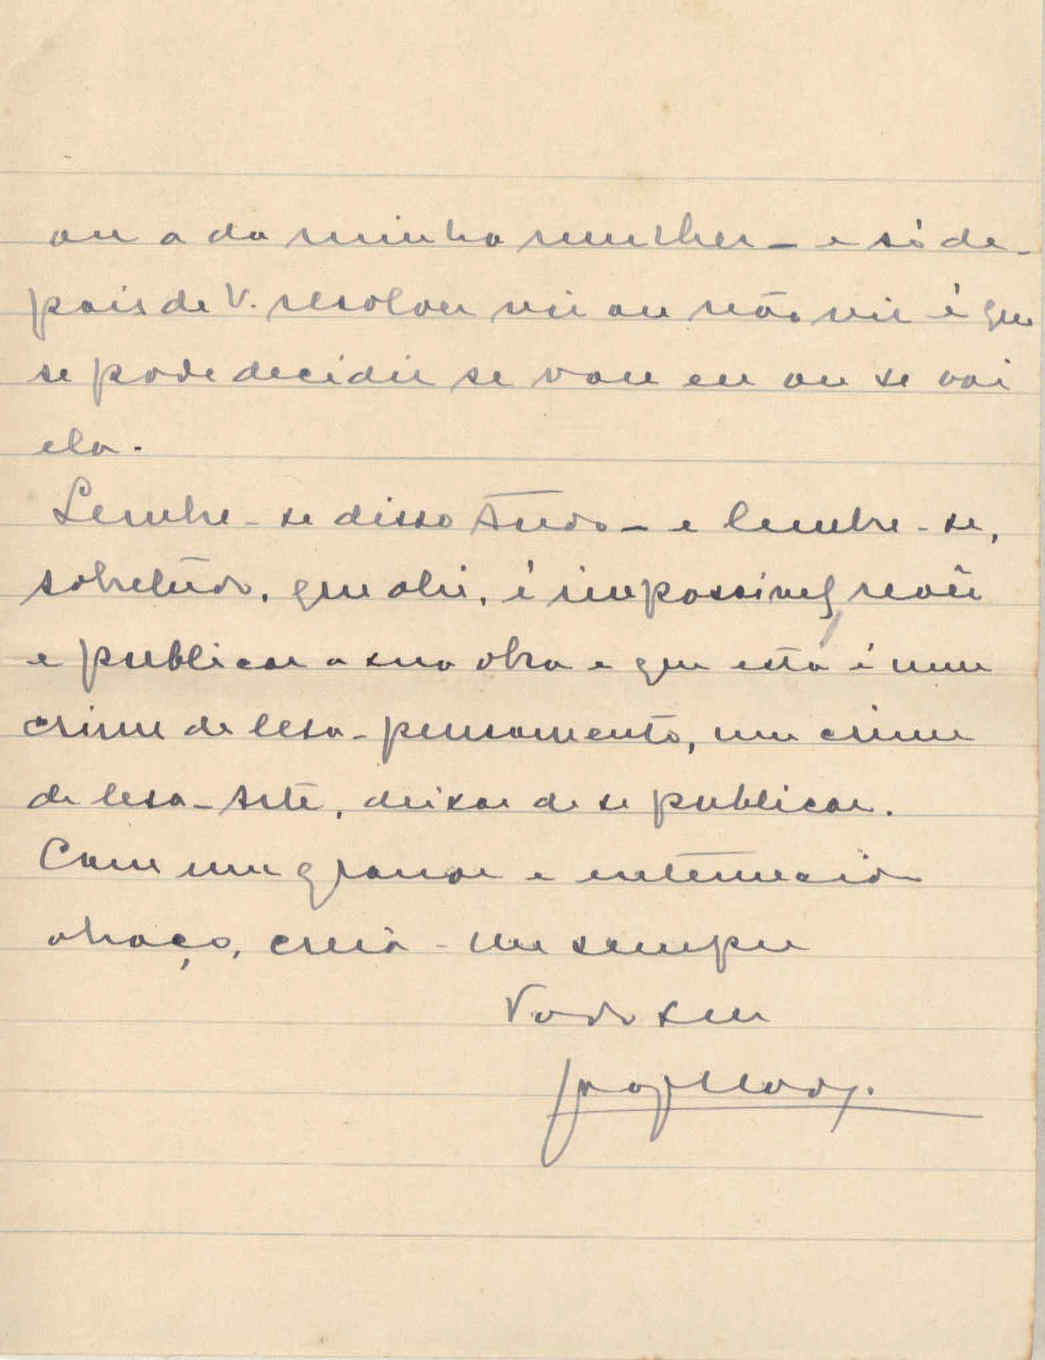 ou a da minha mulher – e só de-
pois de V. resolver vir ou não vir é que
se pode decidir se vou eu ou se vai
ela.
Lembre-se disso tudo – e lembre-se,
sobretudo, que ahi, é impossivel, revêr
e publicar a sua obra e que esta é um
crime de lesa-pensamento, um crime
de lesa-Arte, deixar de se publicar.
Com um grande e enternecido
abraço, creia-me sempre
Todo seu